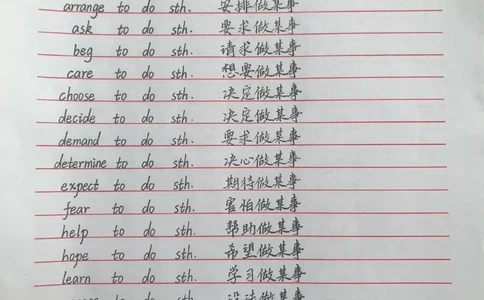 arrange to do sth. 安排做某事
ask to do sth. 要求做某事
beg to do sth. 请求做某事
care to do sth. 想要做某事
choose to do sth. 决定做某事
decide to do sth. 决定做某事
demand to do sth. 要求做某事
determine to do sth. 决心做某事
expect to do sth. 期待做某事
fear to do sth. 害怕做某事
help to do sth. 帮助做某事
hope to do sth. 希望做某事
learn to do sth. 学习做某事
to do sth. 设法做某事